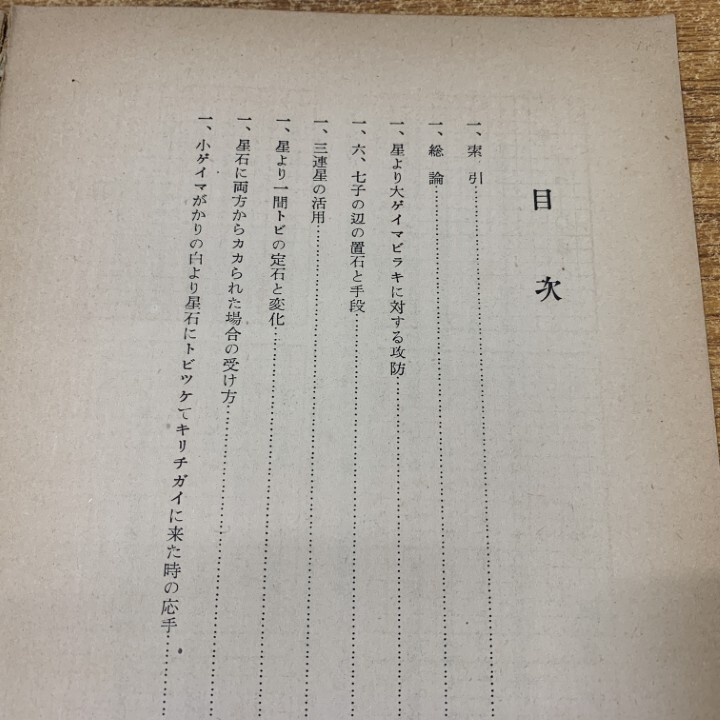 目次
一、索引
一、総論
一、星より大ゲイマビラキに対する攻防
一、六、七子の辺の置石と手段
一、三連星の活用
一、星より一間トビの定石と変化
一、星石に両方からカカられた場合の受け方
一、小ゲイマがかりの白より星石にトビツケてキリチガイに来た時の応手